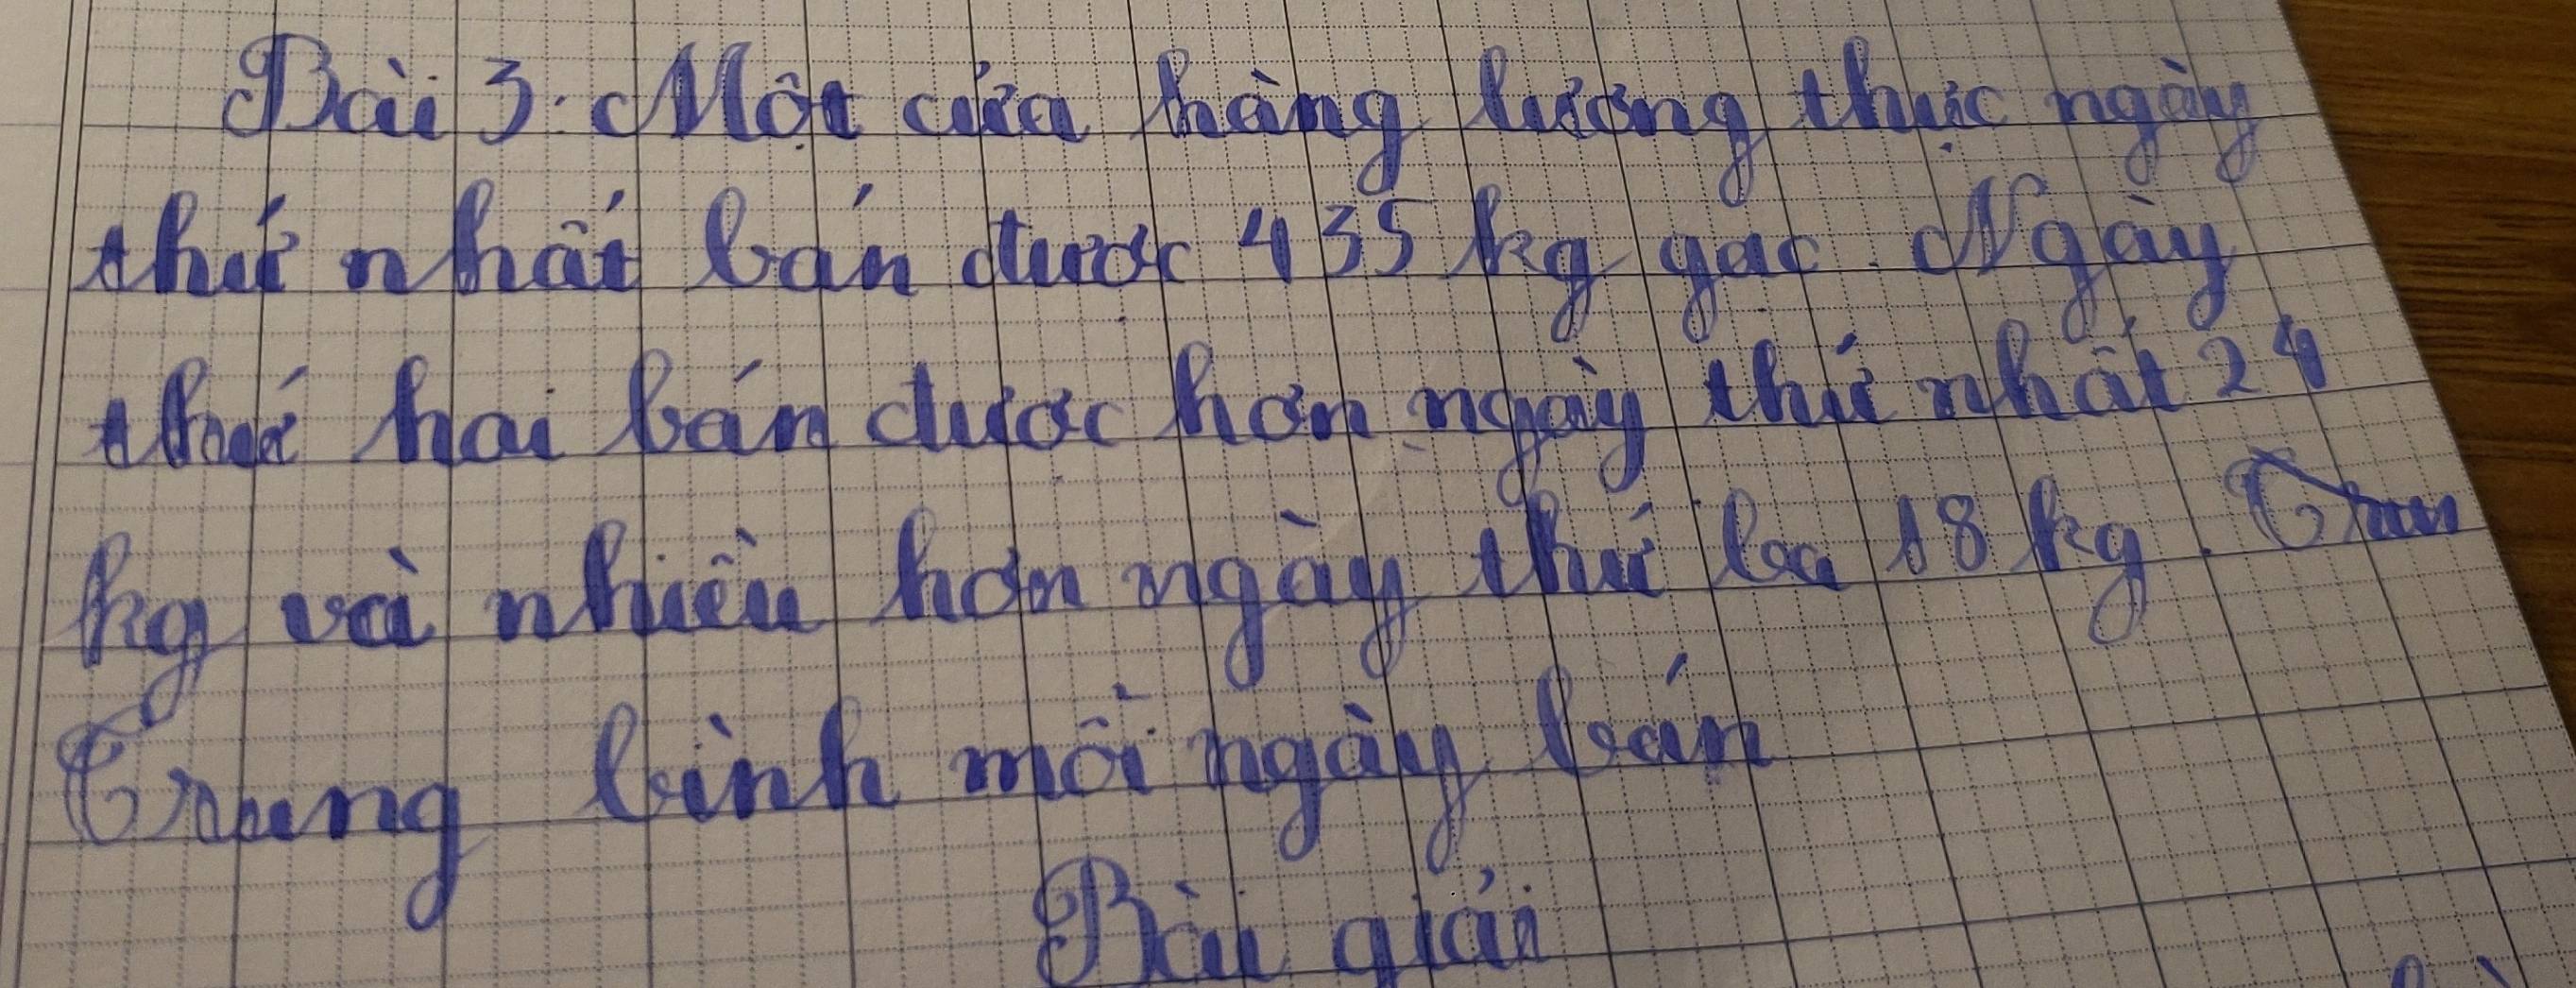 Bài 3: Một cửa hàng lương thực ngày
thứ nhất bán được 435 kg gạo. Ngày
thứ hai bán được hơn ngày thứ nhất 24
kg và nhiều hơn ngày thứ ba 18 kg.
Trung bình mỗi ngày bán
Bài giải